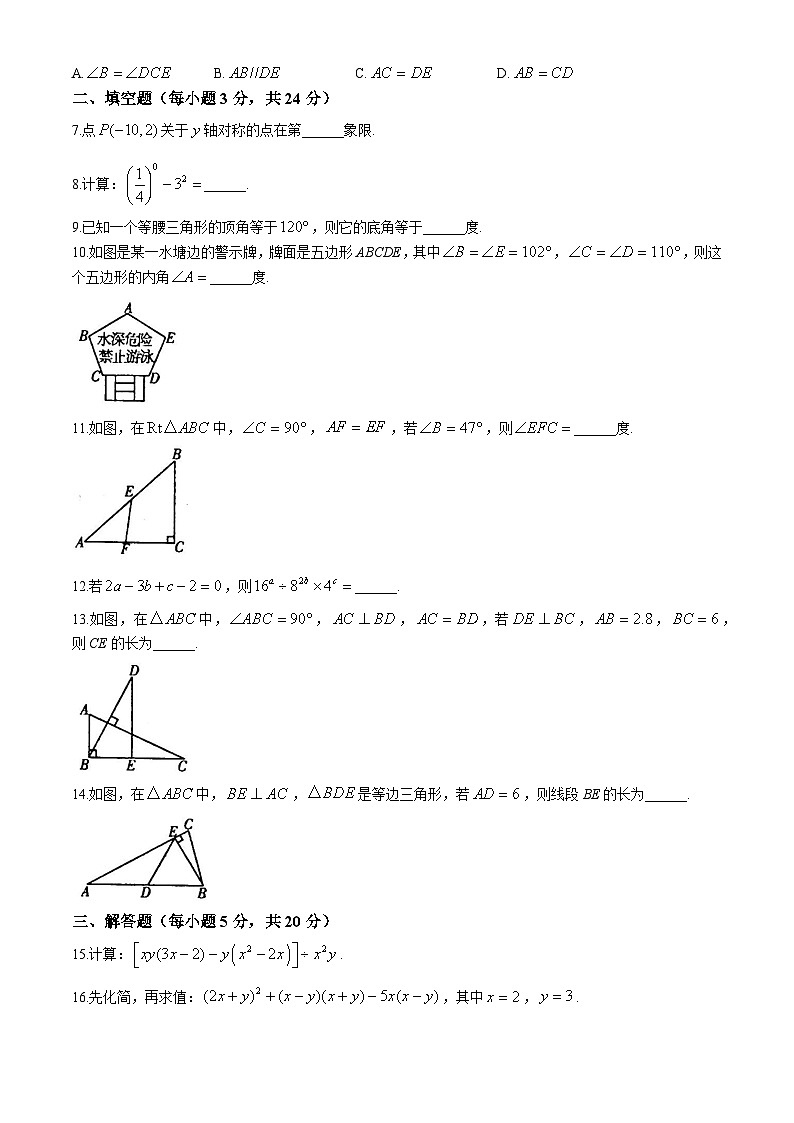 A. ∠B = ∠DCE B. AB//DE C. AC = DE D. AB = CD
二、填空题（每小题 3 分，共 24 分）
7.点 P(−10, 2) 关于 y 轴对称的点在第______象限.
8.计算：(1/4)^0 − 3^2 = ______.
9.已知一个等腰三角形的顶角等于120°，则它的底角等于______度.
10.如图是某一水塘边的警示牌，牌面是五边形 ABCDE，其中∠B = ∠E = 102°，∠C = ∠D = 110°，则这
个五边形的内角∠A = ______度.
A
B 水深危险 E
禁止游泳
C D
11.如图，在Rt△ABC 中，∠C = 90°，AF = EF，若∠B = 47°，则∠EFC = ______度.
B
E
A F C
12.若2a − 3b + c − 2 = 0，则16^a ÷ 8^(2b) × 4^c = ______.
13.如图，在△ABC 中，∠ABC = 90°，AC ⊥ BD，AC = BD，若 DE ⊥ BC，AB = 2.8，BC = 6，
则 CE 的长为______.
D
A
B E C
14.如图，在△ABC 中，BE ⊥ AC，△BDE 是等边三角形，若 AD = 6，则线段 BE 的长为______.
E C
A D B
三、解答题（每小题 5 分，共 20 分）
15.计算：[xy(3x − 2) − y(x^2 − 2x)] ÷ x^2y.
16.先化简，再求值：(2x + y)^2 + (x − y)(x + y) − 5x(x − y)，其中 x = 2，y = 3.